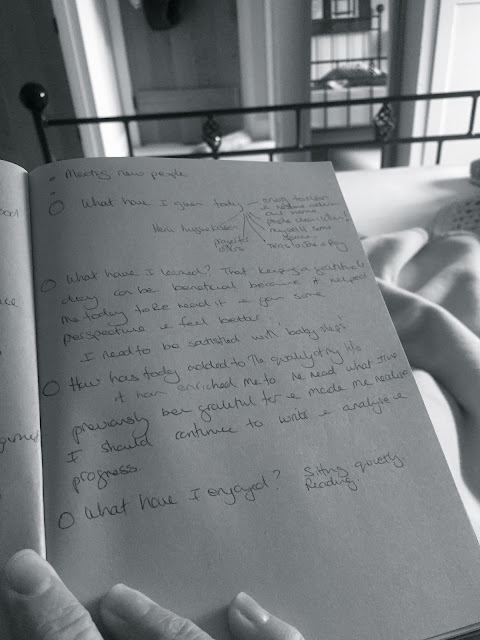 Meeting new people
What have I given today
energy to clean
& restore order in
our home
people charity / clothes
myself some
space
Time to Joe & Ray
Meric hugs & kisses
projects
others
What have I learned? That keeping a gratitude
diary can be beneficial because it helped
me today to Re Read it & gain some
perspective & feel better.
I need to be satisfied with 'baby steps'
How has today added to the quality of my life
it has enriched me to Re read what I've
previously been grateful for & made me realise
I should continue to write & analyse
progress.
What have I enjoyed? Sitting quietly.
Reading.